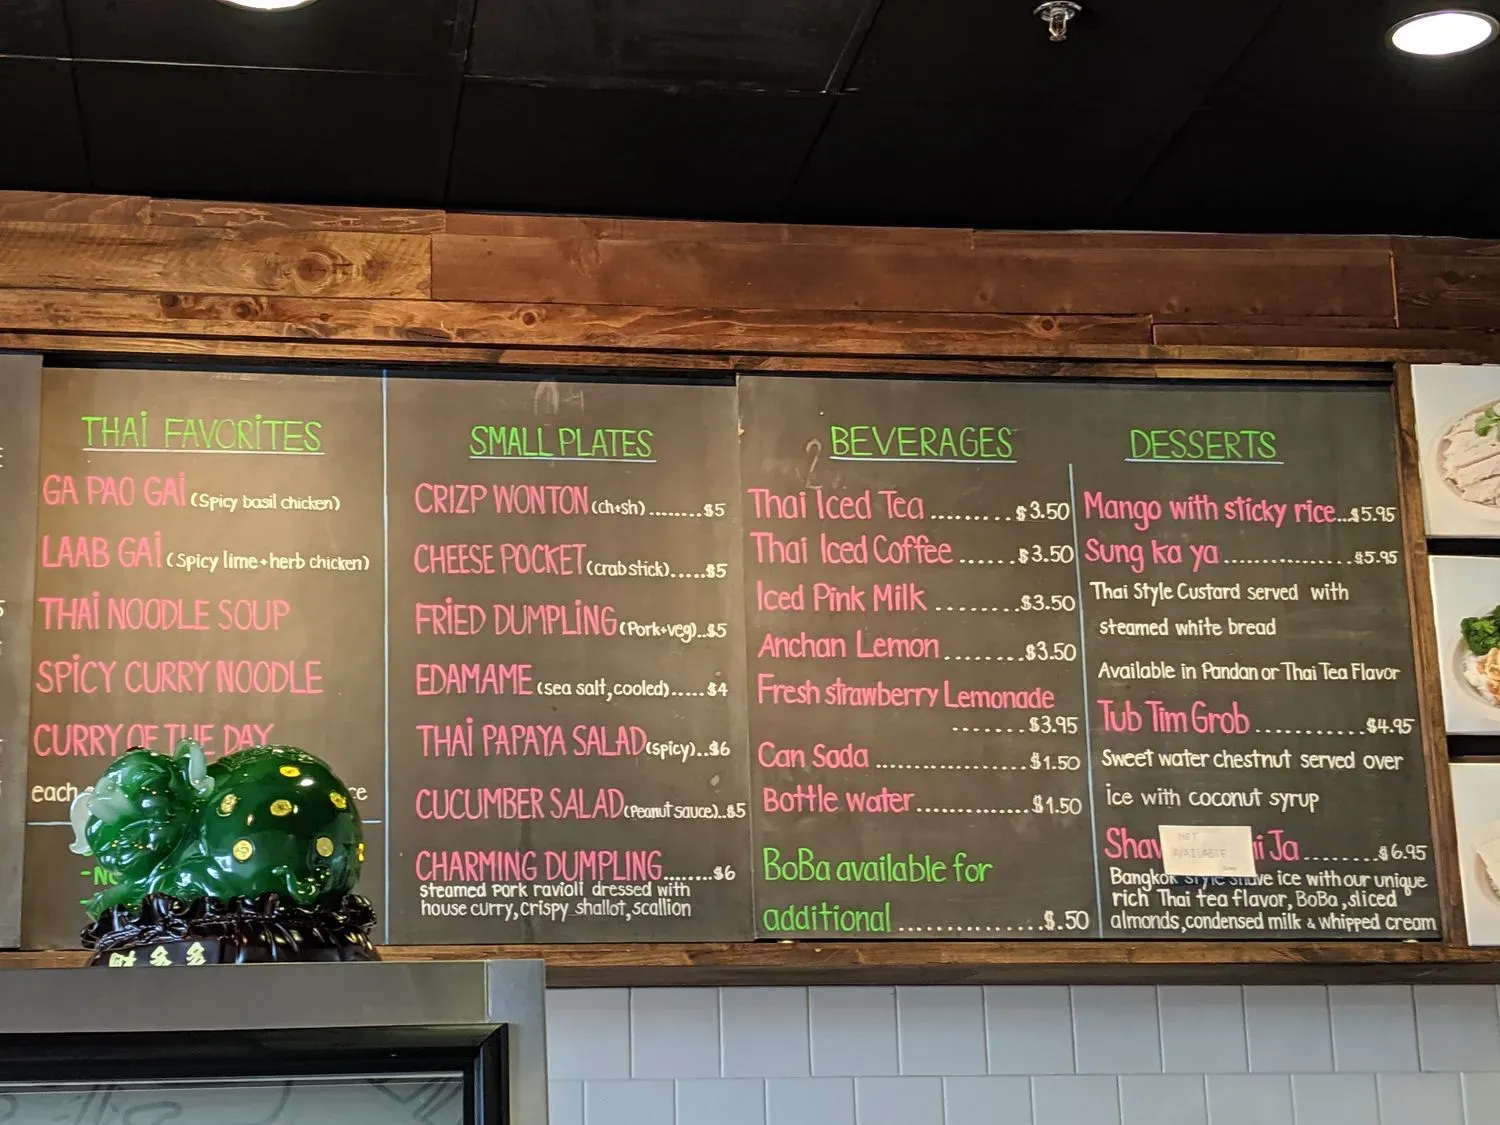 THAI FAVORITES
GA PAO GAI (Spicy basil chicken)
LAAB GAI (Spicy lime+herb chicken)
THAI NOODLE SOUP
SPICY CURRY NOODLE
CURRY OF THE DAY
each
SMALL PLATES
CRIZP WONTON (ch+sh) ........$5
CHEESE POCKET (crab stick).....$5
FRIED DUMPLING (Pork+veg)..$5
EDAMAME (sea salt, cooled).....$4
THAI PAPAYA SALAD (spicy)..$6
CUCUMBER SALAD (Peanut sauce)..$5
CHARMING DUMPLING........$6
steamed pork ravioli dressed with
house curry, crispy shallot, scallion
BEVERAGES
Thai Iced Tea .........$3.50
Thai Iced Coffee ......$3.50
Iced Pink Milk ........$3.50
Anchan Lemon ........$3.50
Fresh strawberry Lemonade
.......$3.95
Can Soda ...............$1.50
Bottle water............$1.50
BoBa available for
additional ..............$.50
DESSERTS
Mango with sticky rice...$5.95
Sung ka ya ...............$5.95
Thai Style Custard served with
steamed white bread
Available in Pandan or Thai Tea Flavor
Tub Tim Grob ...........$4.95
Sweet water chestnut served over
ice with coconut syrup
Shav i Ja ........$6.95
NOT
AVAILABLE
Bangkok style shave ice with our unique
rich Thai tea flavor, BoBa, sliced
almonds, condensed milk & whipped cream